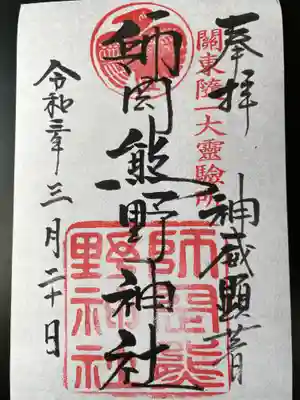 奉拝
關東随一大靈驗所
神威顕著
師岡熊野神社
師岡熊
野神社
令和三年三月二十日